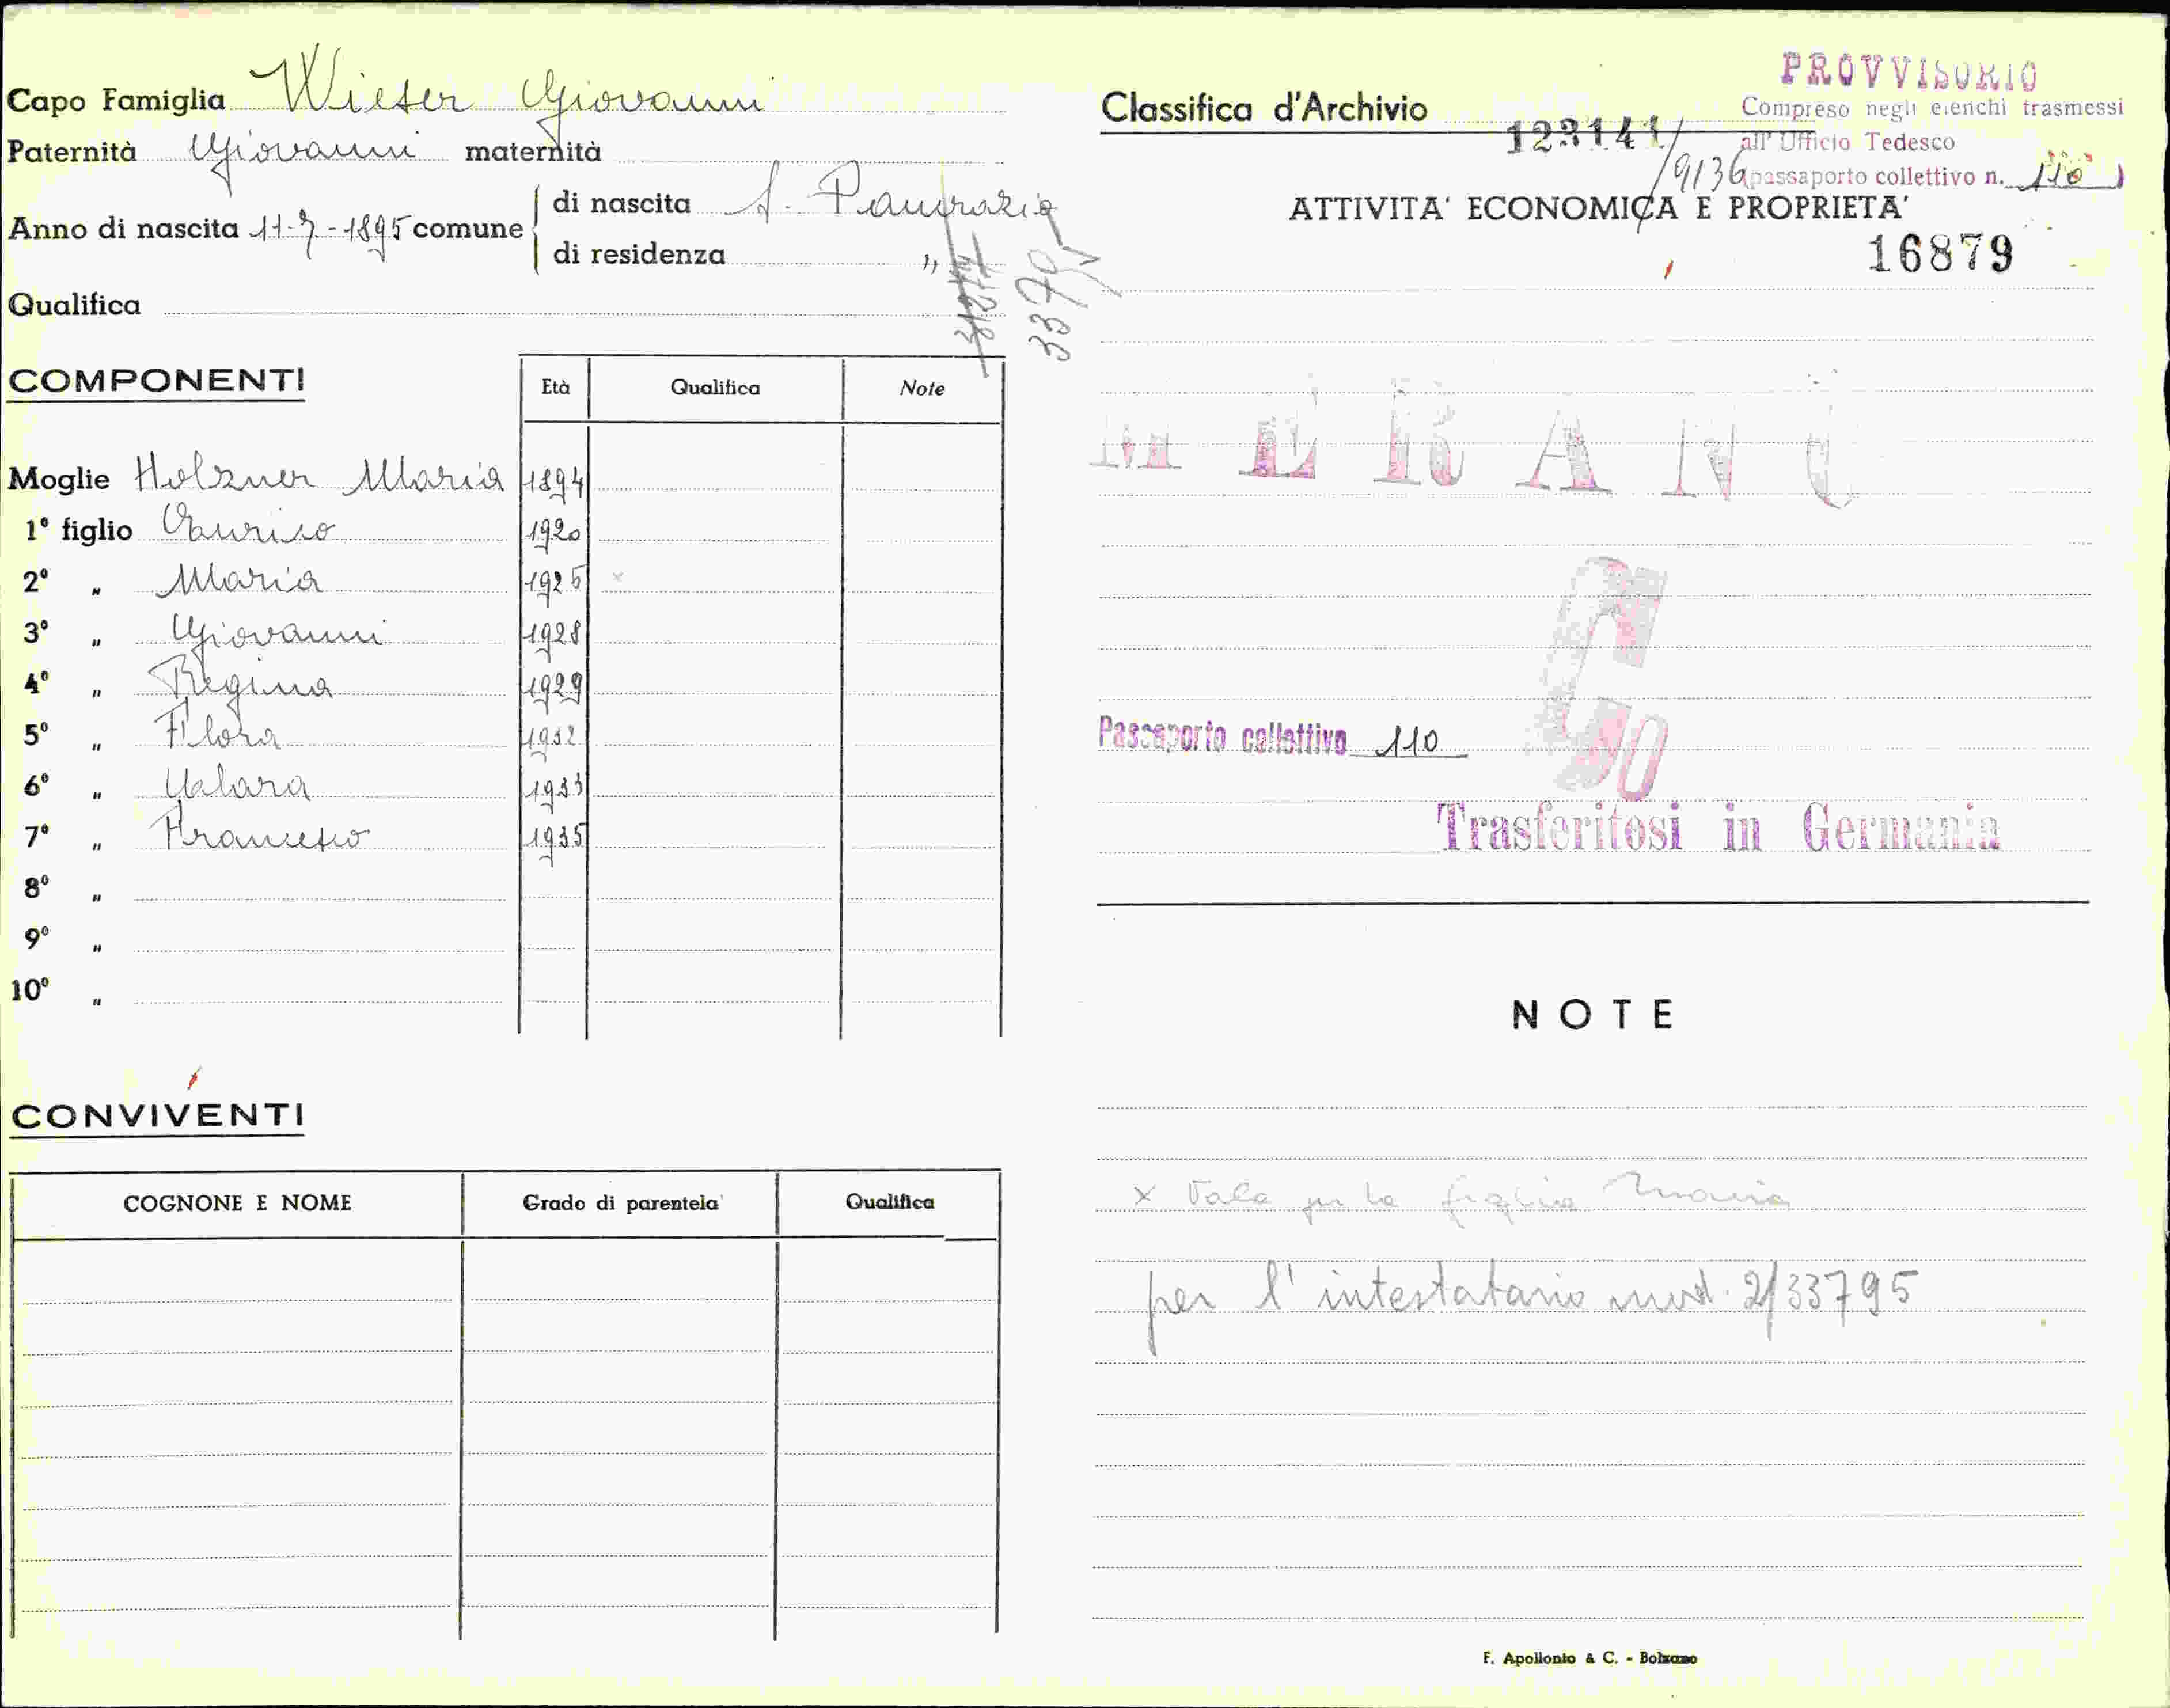 Capo Famiglia Wieser Giovanni
Paternità Giovanni maternità
Anno di nascita 11-7-1895 comune
di nascita S. Pancrazio
di residenza "
33795
Qualifica
COMPONENTI
Età Qualifica Note
Moglie Holzner Maria 1894
1° figlio Enrico 1920
2° " Maria 1925 x
3° " Giovanni 1928
4° " Regina 1929
5° " Flora 1932
6° " Clara 1933
7° " Francesco 1935
8° "
9° "
10° "
CONVIVENTI
COGNONE E NOME Grado di parentela Qualifica
PROVVISORIO
Classifica d'Archivio
Compreso negli elenchi trasmessi
123141/
all' Ufficio Tedesco
/9136 (passaporto collettivo n. 110)
ATTIVITA' ECONOMICA E PROPRIETA'
16879
MERANO
Passaporto collettivo 110
Trasferitosi in Germania
NOTE
x Vale per la figlia Maria
per l'intestatario mod. 2/33795
F. Apollonio & C. - Bolzano